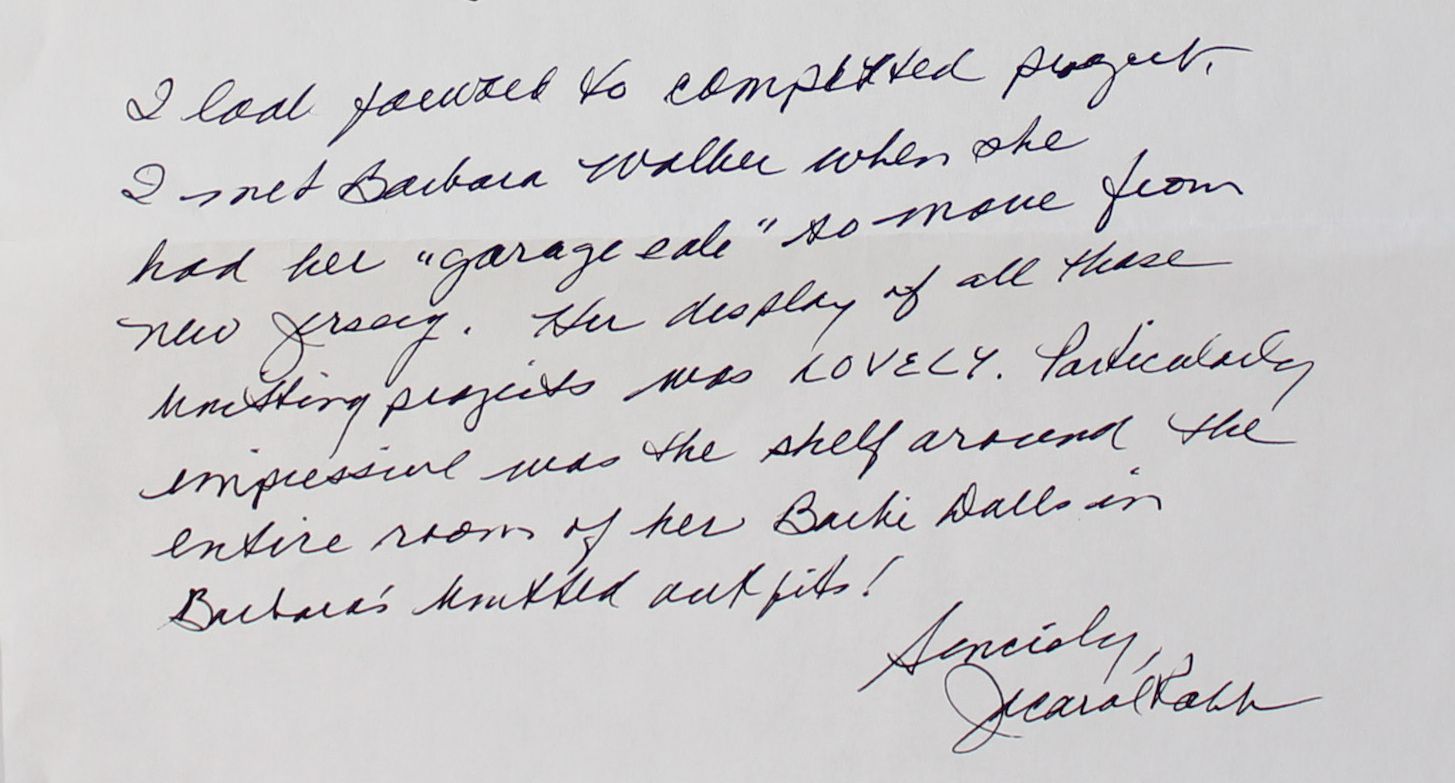 I look forward to completed project.
I met Barbara Walker when she
had her "garage sale" to move from
New Jersey. Her display of all those
knitting projects was LOVELY. Particularly
impressive was the shelf around the
entire room of her Barbie Dolls in
Barbara's knitted outfits!
Sincerely,